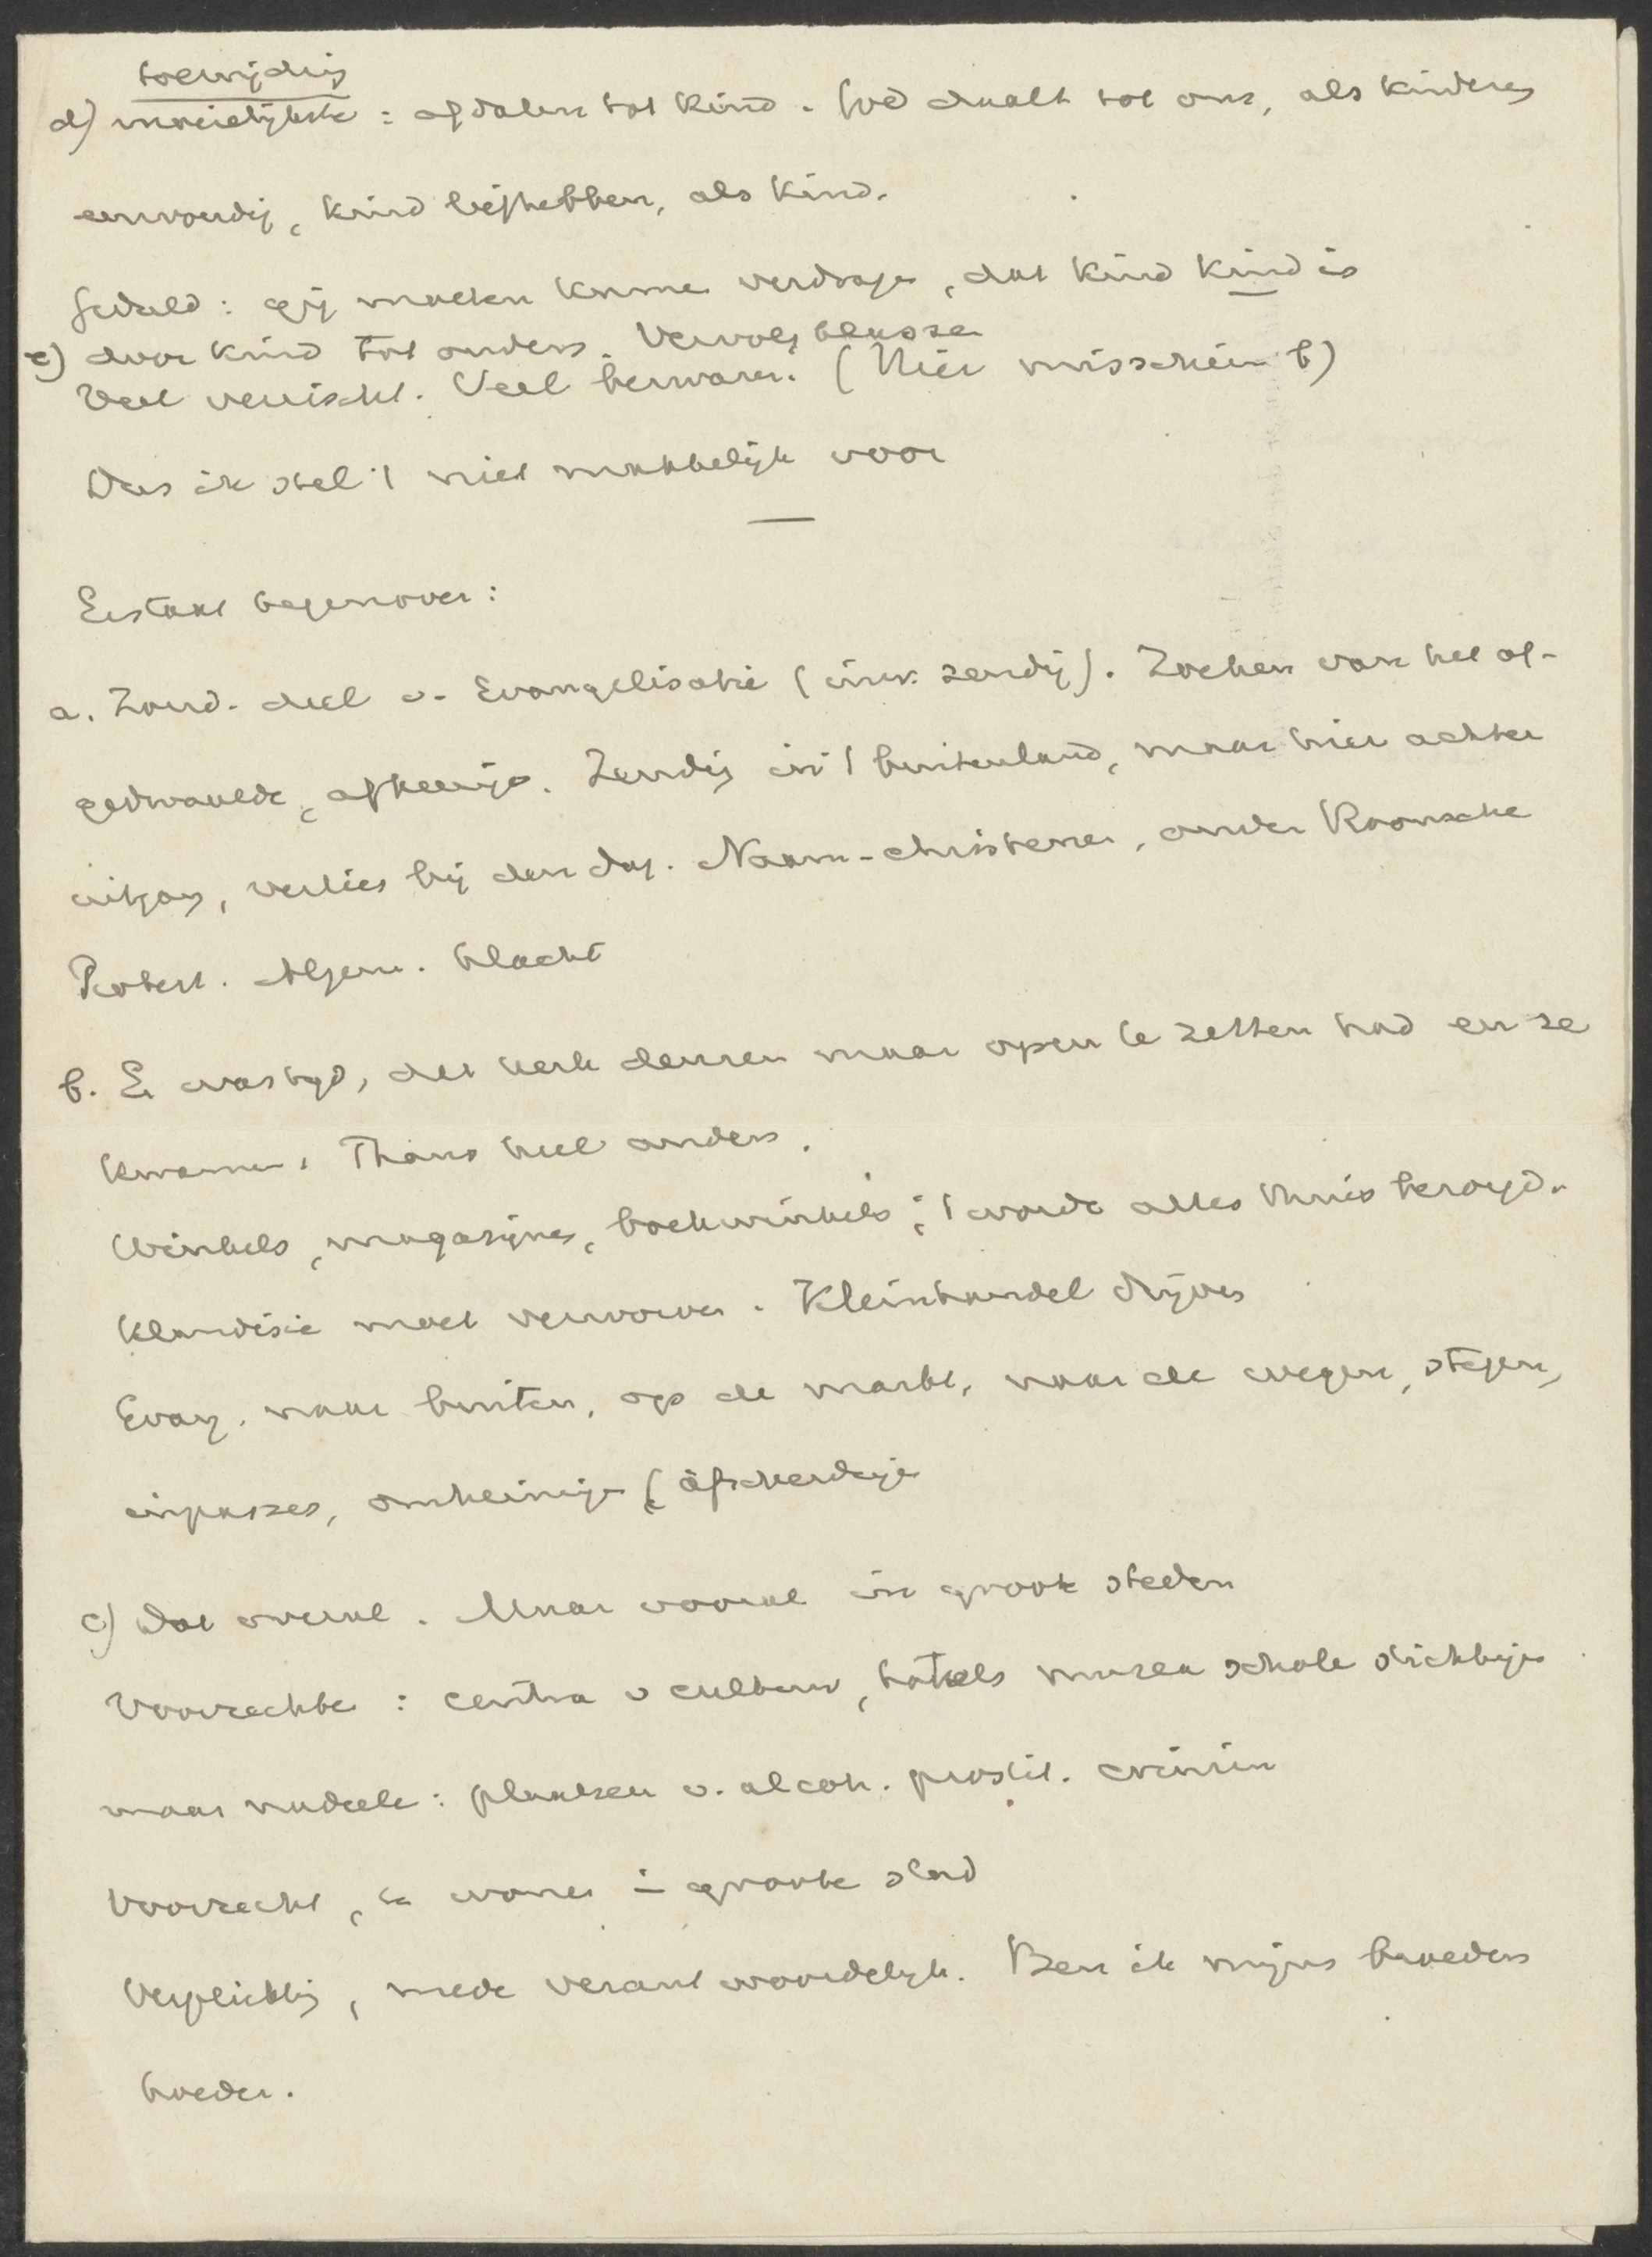 toewijding
d) moeielijkste : afdalen tot kind. God daalt tot ons, als kinderen
eenvoudig, kind liefhebben, als kind.
Geduld : gij moeten kunnen verdragen, dat kind kind is
e) door kind tot ouders. Vervolgklassen
Veel vereischt. Veel bezwaren. (Hier misschien b)
Dus ik stel 't niet makkelijk voor
Er staat tegenover :
a. Zond. deel v. Evangelisatie (inw. zending). Zoeken van het af-
gedwaalde, afkeerige. Zending in 't buitenland, maar hier achter
uitgang, verlies bij den dag. Naam-christenen, onder Roomsche
Protest. Algem. klacht
b. Er was tijd, dat kerk deuren maar open te zetten had en ze
kwamen. Thans heel anders.
Winkels, magazijnen, boekwinkels ; 't wordt alles thuis bezorgd.
Klandisie moet verworven. Kleinhandel drijven
Evang. naar buiten, op de markt, naar de wegen, stegen,
impasses, omheiningen, afscheidingen
c) Dat overal. Maar vooral in groote steden
Voorrechten : centra v cultuur, hotels musea scholen stichtingen
maar nadeelen : plaatsen v. alcoh. prostit. crimin
Voorrecht, te wonen in groote stad
Verplichting, mede verantwoordelijk. Ben ik mijns broeders
hoeder.